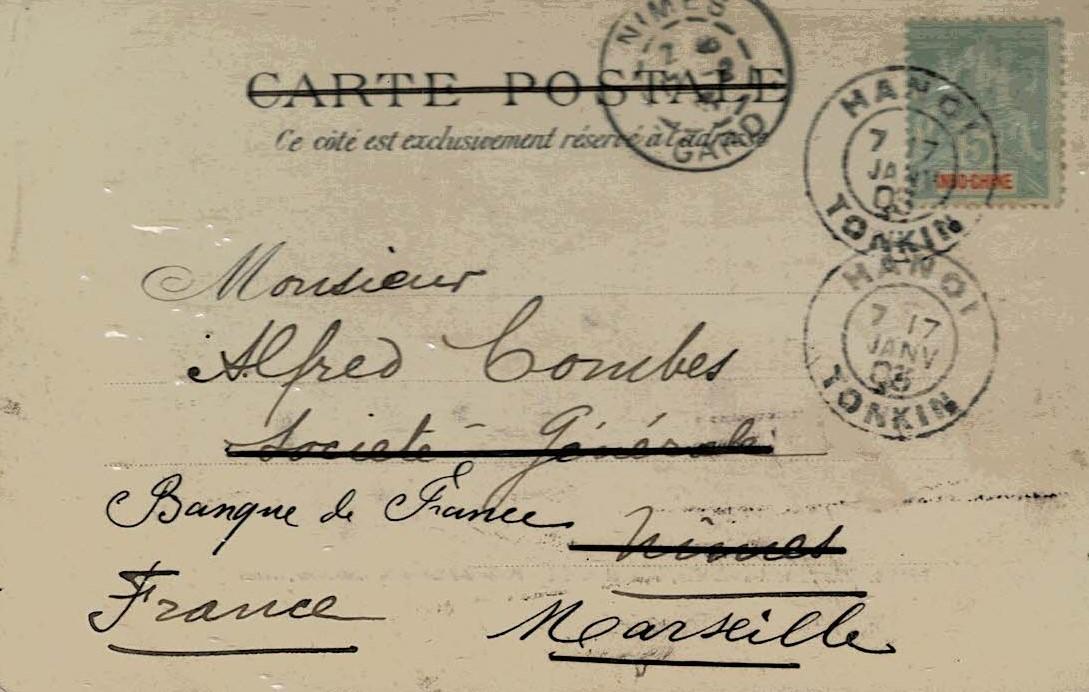 CARTE POSTALE
Ce côté est exclusivement réservé à l'adresse
NIMES
GARD
INDO-CHINE
HANOI
7 17
JANV
03
TONKIN
HANOI
7 17
JANV
03
TONKIN
Monsieur
Alfred Combes
Societé Générale
Banque de France
Nimes
France
Marseille